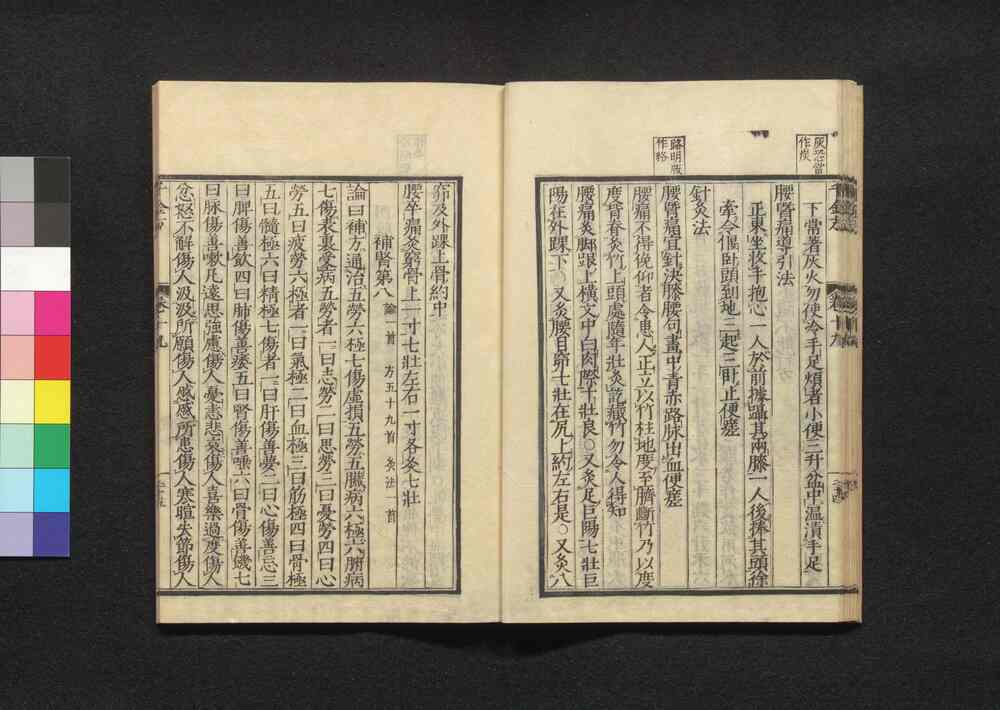 灰恐當
作炭
路明版
作絡
千金方
卷十九
下常著灰火勿使冷手足煩者小便三升盆中温漬手足
腰臀痛導引法
正東坐收手抱心一人於前據躡其兩膝一人後捧其頭徐
牽令偃臥頭到地三起三卧止便瘥
針灸法
腰臀痛宜針決膝腰句畫中青赤路脉出血便瘥
腰痛不得俛仰者令患人正立以竹柱地度至臍斷竹乃以度
度背脊灸竹上頭處隨年壯灸訖藏竹勿令人得知
腰痛灸脚跟上橫文中白肉際十壯良○又灸足巨陽七壯巨
陽在外踝下○又灸腰目窌七壯在尻上約左右是○又灸八
窌及外踝上骨約中
腰卒痛灸窮骨上一寸七壯左右一寸各灸七壯
補腎第八 論一首 方五十九首 灸法一首
論曰補方通治五勞六極七傷虛損五勞五臟病六極六腑病
七傷表裏受病五勞者一曰志勞二曰思勞三曰憂勞四曰心
勞五曰疲勞六極者一曰氣極二曰血極三曰筋極四曰骨極
五曰髓極六曰精極七傷者一曰肝傷善夢二曰心傷善忘三
曰脾傷善飲四曰肺傷善痿五曰腎傷善唾六曰骨傷善饑七
曰脉傷善嗽凡遠思強慮傷人憂恚悲哀傷人喜樂過度傷人
忿怒不解傷人汲汲所願傷人慼慼所患傷人寒暄失節傷人